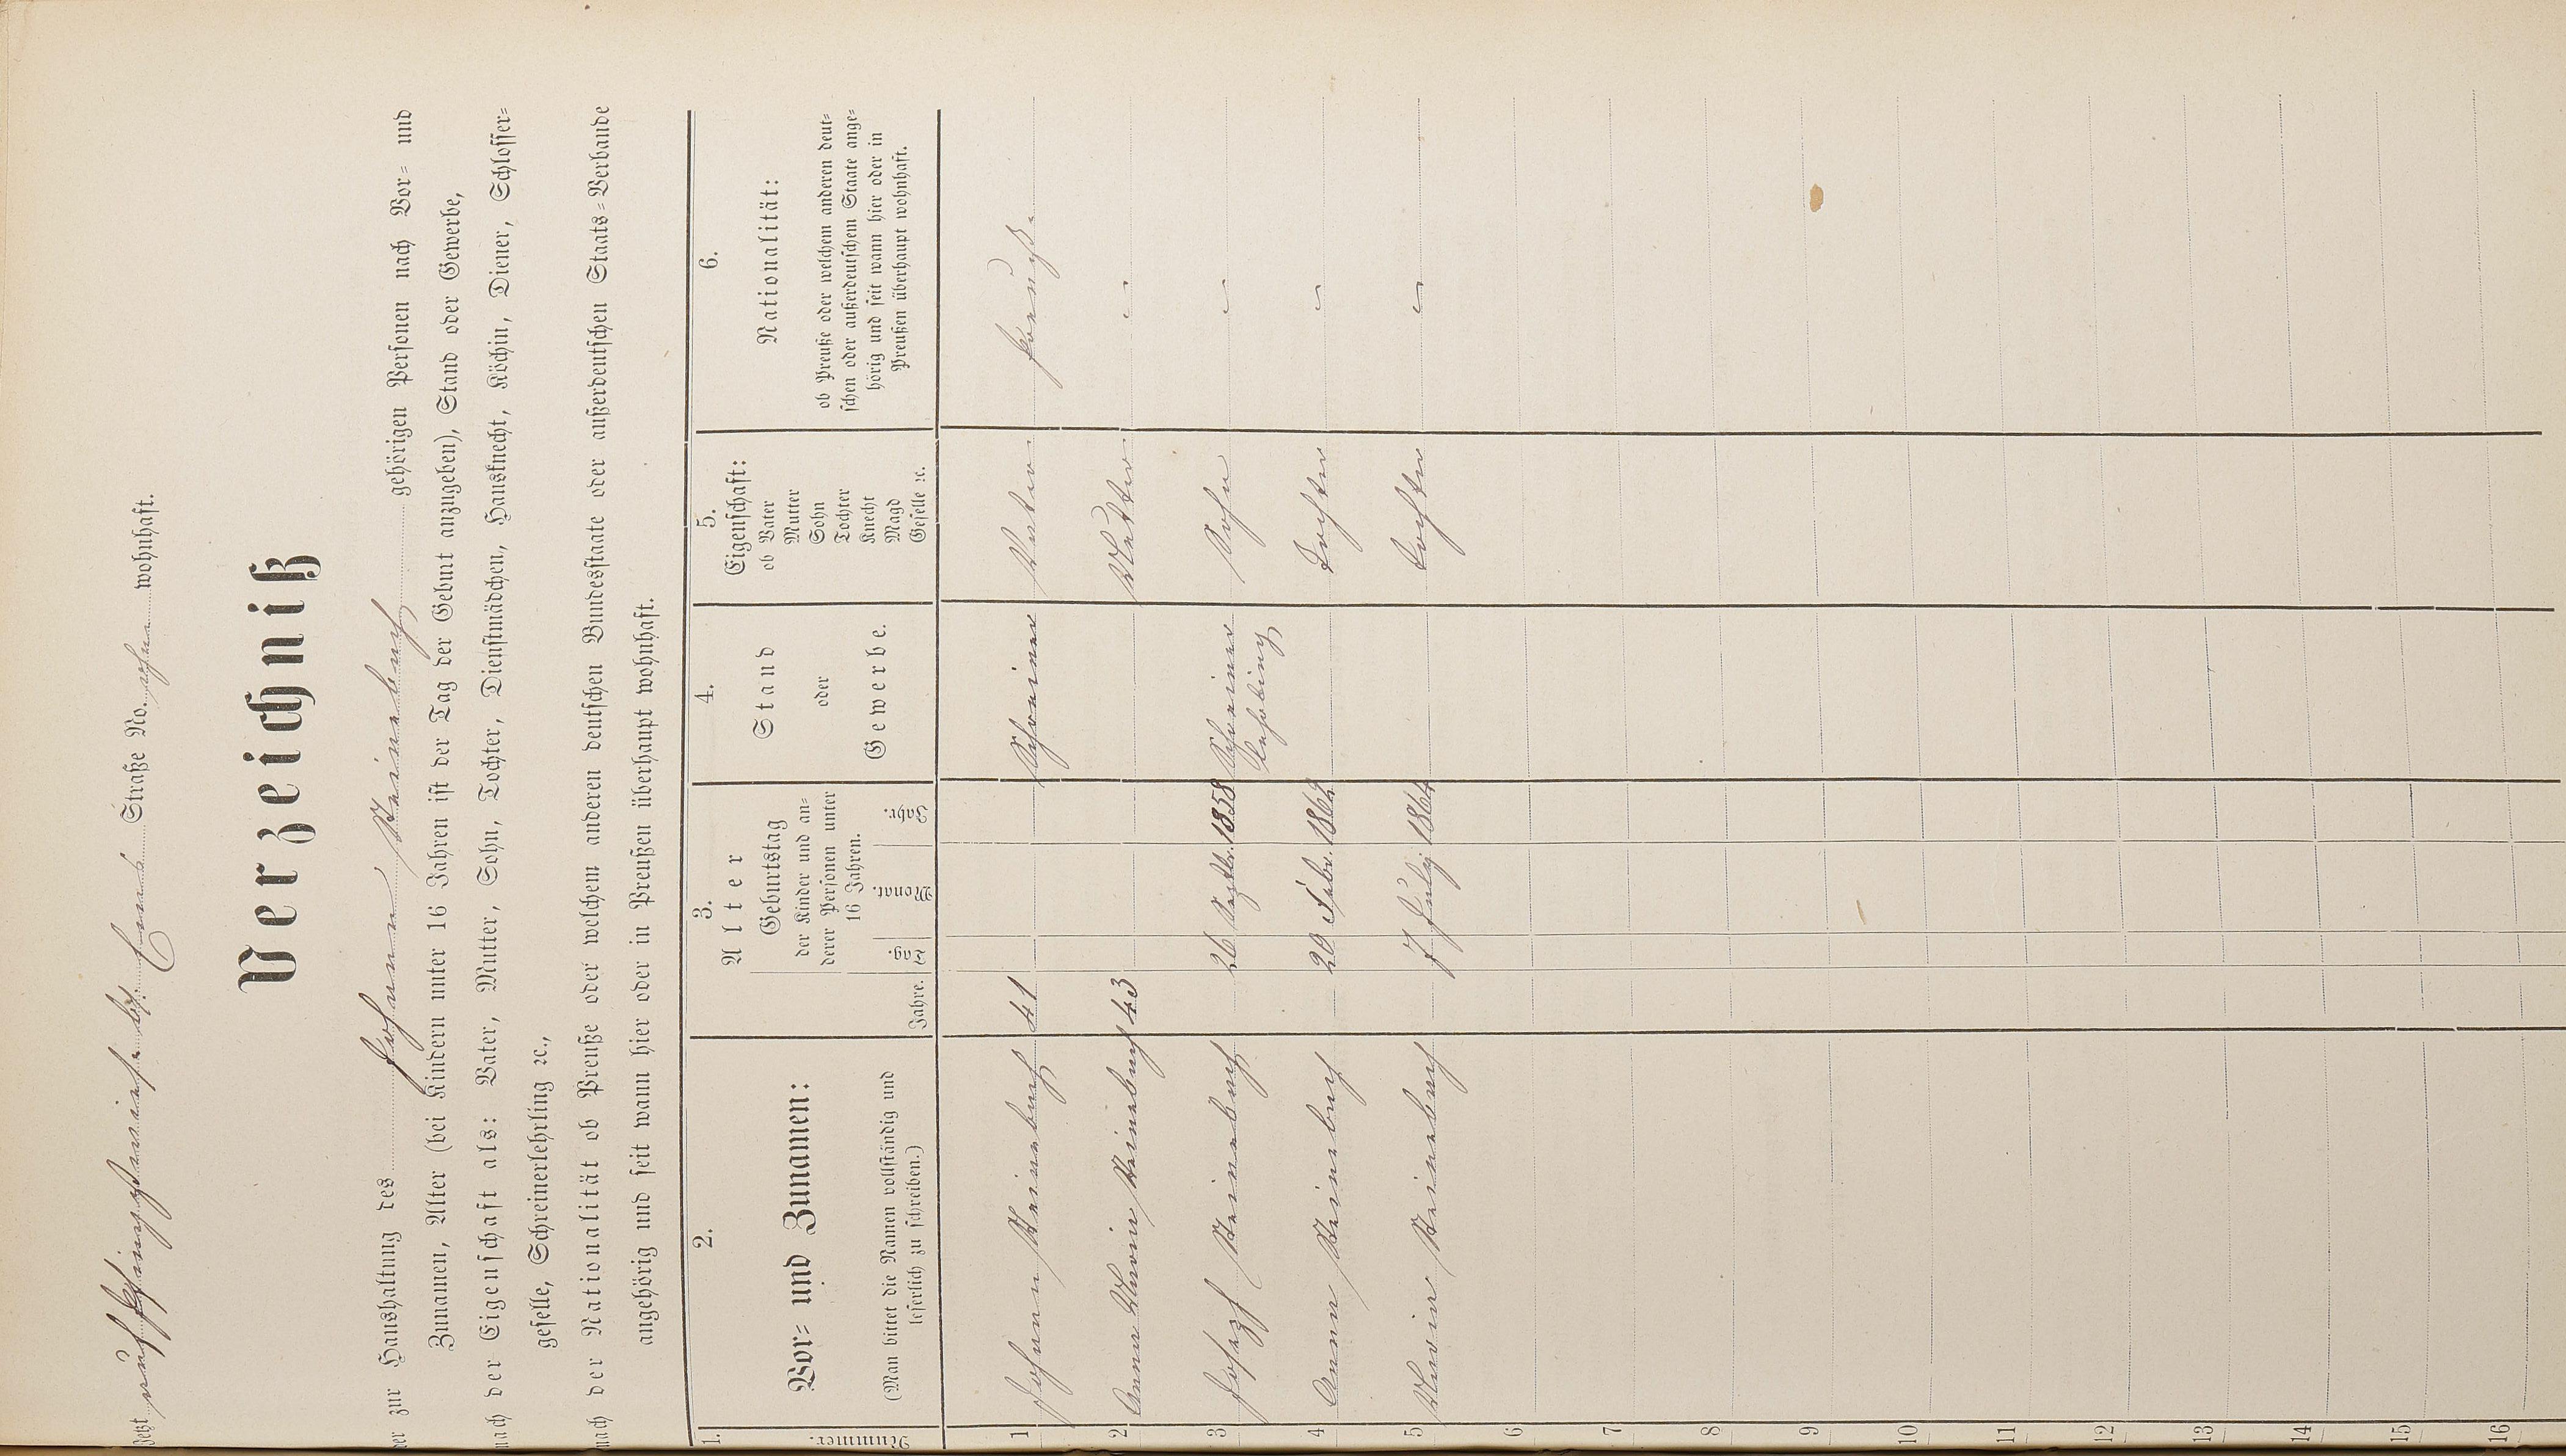 Jetzt auf
Straße No. wohnhaft.
Verzeichniß
der zur Haushaltung des Johann Steinebach gehörigen Personen nach Vor- und
Zunamen, Alter (bei Kindern unter 16 Jahren ist der Tag der Geburt anzugeben), Stand oder Gewerbe,
nach der Eigenschaft als: Vater, Mutter, Sohn, Tochter, Dienstmädchen, Hausknecht, Köchin, Diener, Schlosser-
geselle, Schreinerlehrling ꝛc.,
nach der Nationalität ob Preuße oder welchem anderen deutschen Bundesstaate oder außerdeutschen Staats-Verbande
angehörig und seit wann hier oder in Preußen überhaupt wohnhaft.
1.
Nummer.
2.
Vor- und Zunamen:
(Man bittet die Namen vollständig und
leserlich zu schreiben.)
3.
Alter
Jahre.
Geburtstag
der Kinder und an-
derer Personen unter
16 Jahren.
Tag. Monat. Jahr.
4.
Stand
oder
Gewerbe.
5.
Eigenschaft:
ob Vater
Mutter
Sohn
Tochter
Knecht
Magd
Geselle ꝛc.
6.
Nationalität:
ob Preuße oder welchem anderen deut-
schen oder außerdeutschem Staate ange-
hörig und seit wann hier oder in
Preußen überhaupt wohnhaft.
1 Johann Steinebach 41 Schreiner Vater Preuße
2 Anna Maria Steinebach 43 Mutter "
3 Joseph Steinebach 26 Septbr. 1858 Schreiner Sohn "
Lehrling
4 Anna Steinebach 20 Febr. 1862 Tochter "
5 Maria Steinebach 7 July 1864 Tochter "
6
7
8
9
10
11
12
13
14
15
16